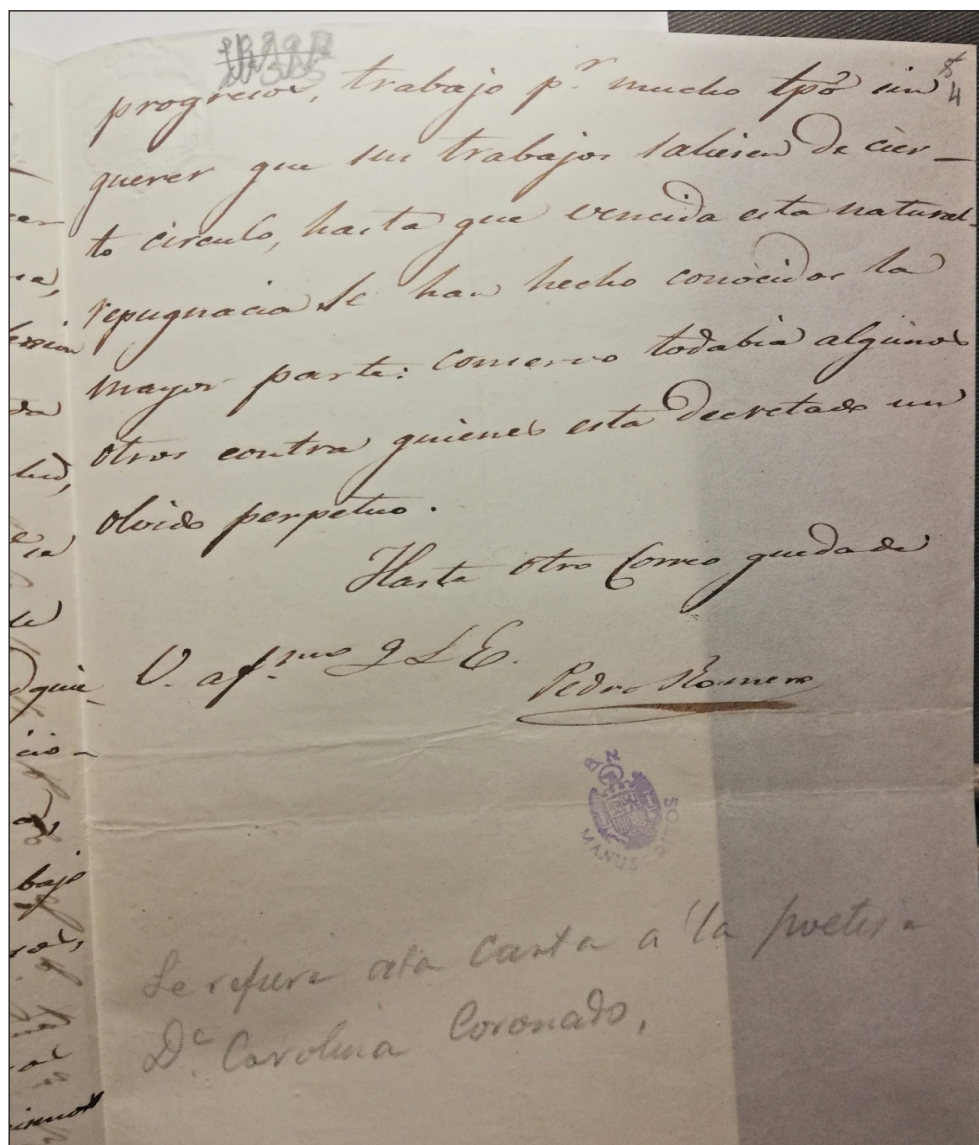 4
progrecios, trabajo p.r mucho tpõ sin
querer que sus trabajos saliesen de cier-
to circulo, hasta que vencida esta natural
repugnacia se han hecho conocidos la
mayor parte: conservo todabia algunos
otros contra quienes esta decretado un
olvido perpetuo.
Hasta otro Correo queda de
V. af.mo
Pedro Romero
B N
MANUSCRITOS
Se refiere esta Carta a la poetisa
Dª Carolina Coronado,
bajo